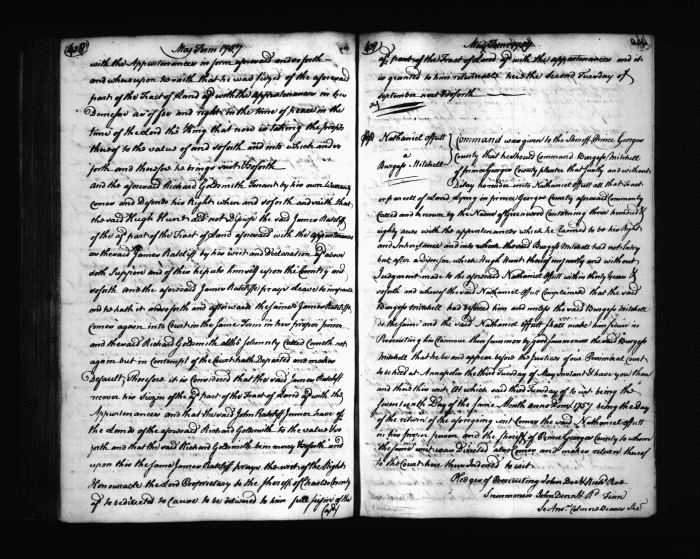 408 May Term 1757
with the Appurtenances in form aforesaid and so forth
and whereupon he saith that he was seized of the aforesaid
part of the Tract of Land afd. with the Appurtenances in his
Demesne as of fee and right in the time of peace in the
time of the Lord the King that now is taking the profits
thereof to the value of and so forth and into which and so
forth and therefore he brings suit &c soforth
And the aforesaid Richard Goldsmith Tenant by his own Warranty
Comes and Defends his Right when and so forth and saith that
the said Hugh Hunt did not Disseise the said James Ratcliff
of the afd. part of the Tract of Land aforesaid with the appurtenances
as the said James Ratcliff by his writ and Declaration afd. above
doth Suppose and of this he puts himself upon the Country and
so forth And the aforesaid James Ratcliff prays leave to imparle
and he hath it and so forth and afterwards the same James Ratcliff
Comes again into Court in the same Term in his proper person
and the said Richard Goldsmith altho' solemnly called Cometh not
again but in Contempt of the Court hath Departed and makes
Default, Therefore it is Considered that the said James Ratcliff
recover his Seizin of the afd. part of the Tract of Land afd. with the
Appurtenances and that the said John Ratcliff James have of
the Lands of the aforesaid Richard Goldsmith to the value &c so
forth and that the said Richard Goldsmith be in mercy &c soforth and
upon this the same James Ratcliff prays the writ of the Right
Honourable the Lord Proprietary to the Sheriff of Charles County
afd. to be directed to Cause to be delivered to him full seizin of the
(afd.)
409 May Term 1757
afd. part of the Tract of Land afd. with the appurtenances and it
is granted to him returnable here the Second Tuesday of
September next &c soforth
Nathaniel Offutt
a
Burgess Mitchell
Command was given to the Sheriff of Prince Georges
County that he should Command Burgess Mitchell
of prince Georges County planter that justly and without
Delay he render unto Nathaniel Offutt all that Tract
or parcel of Land Lying in prince Georges County aforesaid Commonly
Called and known by the Name of Greenwood Containing three hundred &
eighty acres with the appurtenances which he Claimed to be his Right
and Inheritance and into which the said Burgess Mitchell had not Entry
but after a disseizin which Hugh Hunt thereof unjustly and without
Judgment made to the aforesaid Nathaniel Offutt within thirty Years &
so forth and whereof the said Nathaniel Offutt Complained that the said
Burgess Mitchell had deforced him and unless the said Burgess Mitchell
do the same and the said Nathaniel Offutt shall make him secure in
Prosecuting his Clamour then summon by good summoners the said Burgess
Mitchell that he be and appear before the Justices of our Provincial Court
to be held at Annapolis the third Tuesday of May Instant & have you then
and there this writ At which said third Tuesday of to wit being the
Seventeenth Day of the same Month Anno Dom. 1757 being the Day
of the return of the aforegoing writ Comes the said Nathaniel Offutt
in his proper person and the Sheriff of Prince Georges County to whom
the said writ was Directed also Comes and makes return thereof
to the Court here thus Indorsed to wit
Pledges of Prosecuting John Doe & Richd. Roe
Summoners John Denn & Rd. Fenn
So Ans.